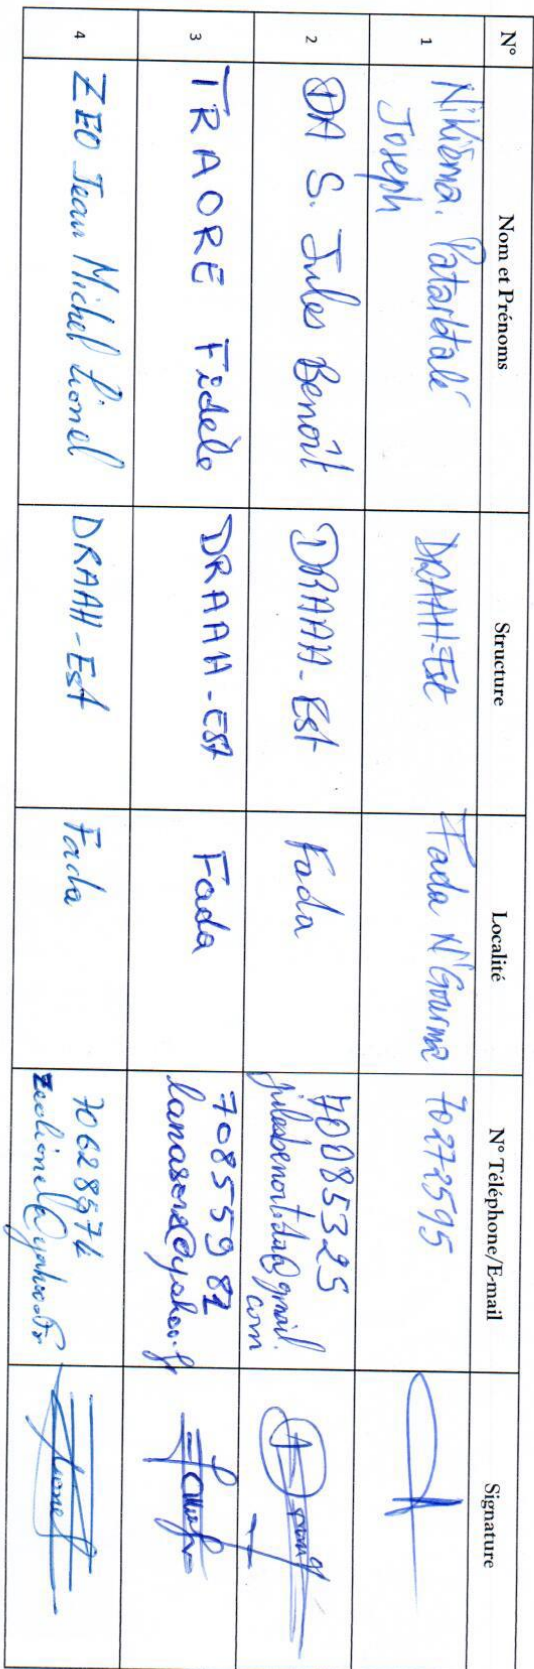 N° Nom et Prénoms Structure Localité N° Téléphone/E-mail Signature
1 Nikiéma Patarbtalé DRAAH-Est Fada N'Gourma 70272595
Joseph
2 DA S. Jules Benoît DRAAH-Est Fada 70085325
julesbenoit.da@gmail.
com
3 TRAORE Fidèle DRAAH-EST Fada 70855982
4 ZEO Jean Michel Lionel DRAAH-Est Fada
zeolionel@yahoo.fr Lionel